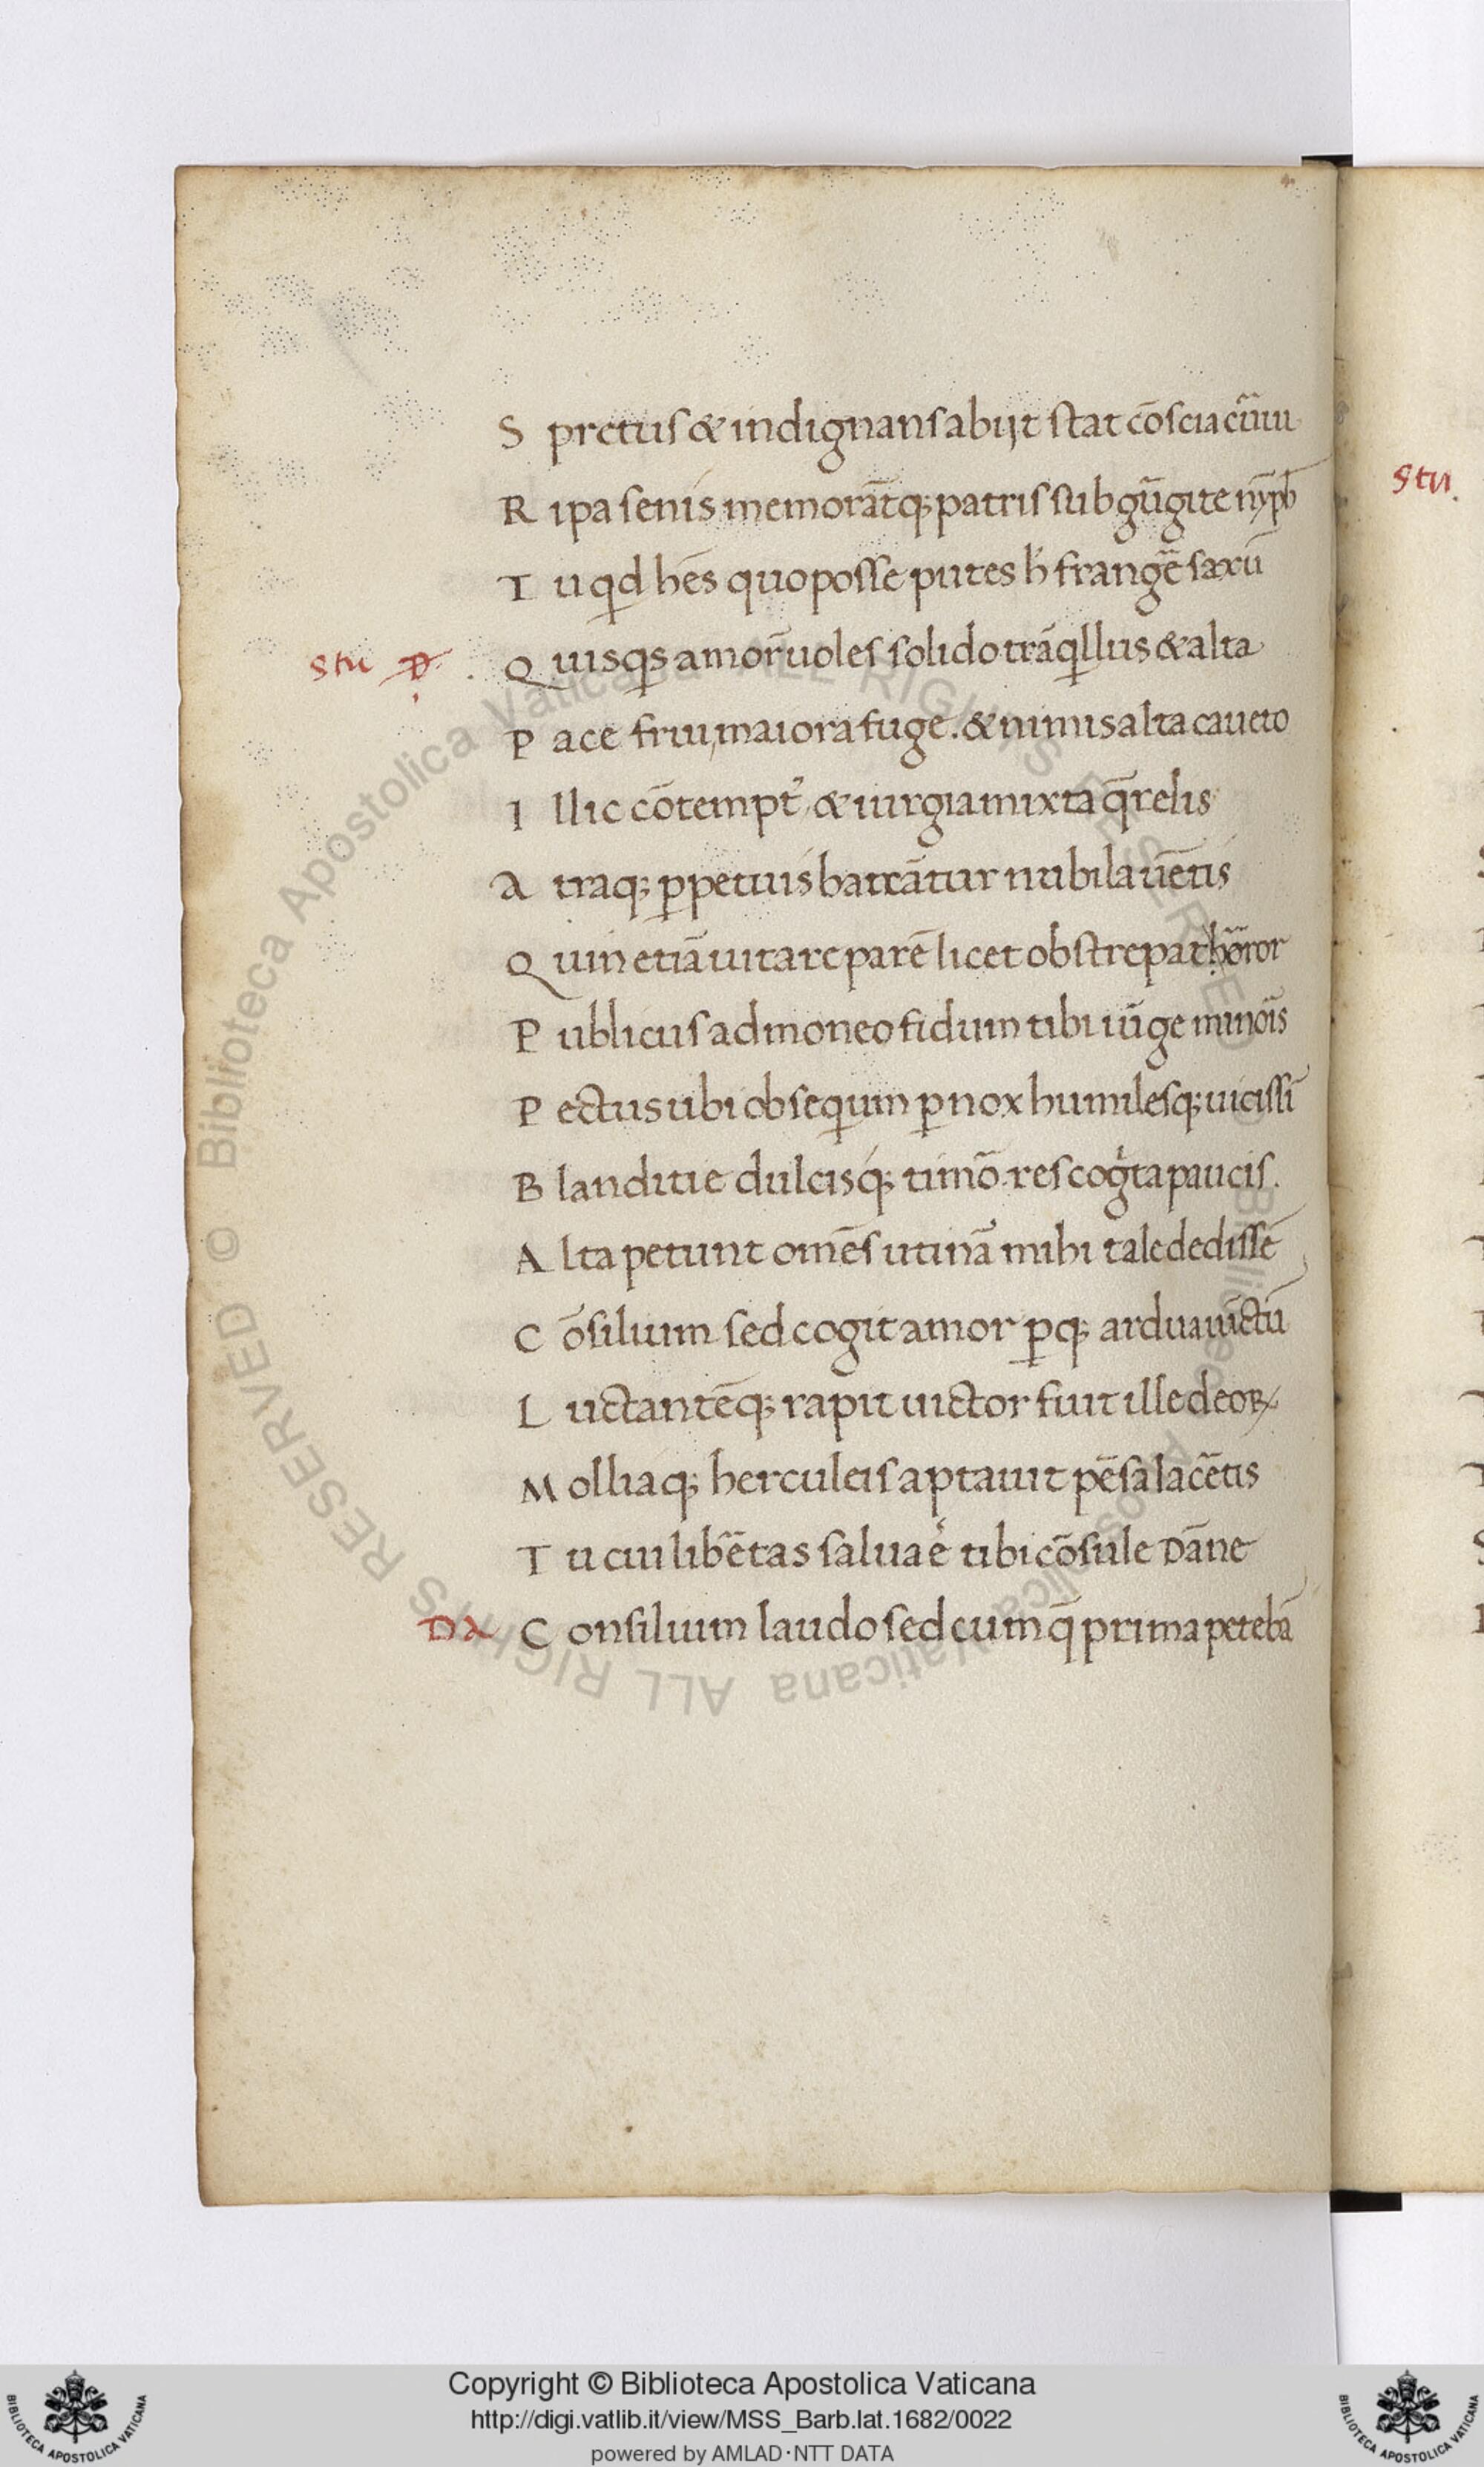 S pretus & indignans abijt stat cōscia cūui
R ipa senis memorātq; patris sub gūgite nyph̄
T u qd hēs quo posse putes h' frangē saxū
stu P. Quisqs amor̄ uoles solido trāqllus & alta
P ace frui, maiora fuge. & nimis alta caueto
I llic cōtempt' & iurgia mixta q̄relis
A traq; ꝑpetuis bacxātur nubila uētis
Q uin etiā uitare parē licet obstrepat hōror
P ublicus admoneo fidum tibi iūge minōis
P ectus ubi obsequm ꝑnox humilesq; uicissi
B landitie dulcisq; timō. res cogita paucis.
A lta petunt omēs utinā mihi tale dedissē
C ōsilium sed cogit amor ꝑq; ardua uictū
L uctantēq; rapit uictor fuit ille deoꝝ
M olliaq; herculeis aptauit pēsa lacētis
T u cui libētas salua ē tibi cōsule Dāne
DA C onsilium laudo sed cum q̄ prima petebā
stu.
Copyright © Biblioteca Apostolica Vaticana
http://digi.vatlib.it/view/MSS_Barb.lat.1682/0022
powered by AMLAD·NTT DATA